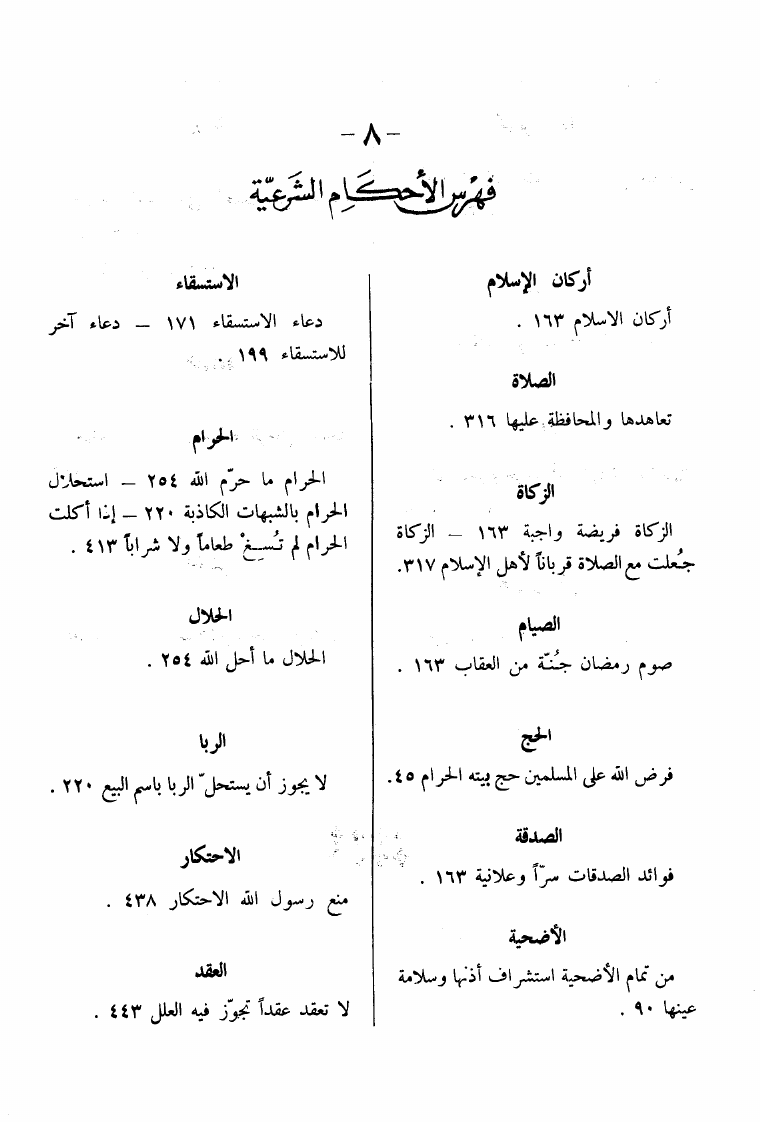 -٨-
فهْرس الأحكَام الشَرعيّة
أركان الإسلام
أركان الاسلام ١٦٣ .
الصلاة
تعاهدها والمحافظة عليها ٣١٦ .
الزكاة
الزكاة فريضة واجبة ١٦٣ – الزكاة
جُعلت مع الصلاة قرباناً لأهل الإسلام ٣١٧.
الصيام
صوم رمضان جُنّة من العقاب ١٦٣ .
الحج
فرض الله على المسلمين حج بيته الحرام ٤٥.
الصدقة
فوائد الصدقات سرّاً وعلانية ١٦٣ .
الأضحية
من تمام الأضحية استشراف أذنها وسلامة
عينها ٩٠ .
الاستسقاء
دعاء الاستسقاء ١٧١ – دعاء آخر
للاستسقاء ١٩٩ .
الحرام
الحرام ما حرّم الله ٢٥٤ – استحلال
الحرام بالشبهات الكاذبة ٢٢٠ – إذا أكلت
الحرام لم تُسِغْ طعاماً ولا شراباً ٤١٣ .
الحلال
الحلال ما أحل الله ٢٥٤ .
الربا
لا يجوز أن يستحلّ الربا باسم البيع ٢٢٠ .
الاحتكار
منع رسول الله الاحتكار ٤٣٨ .
العقد
لا تعقد عقداً تجوّز فيه العلل ٤٤٣ .